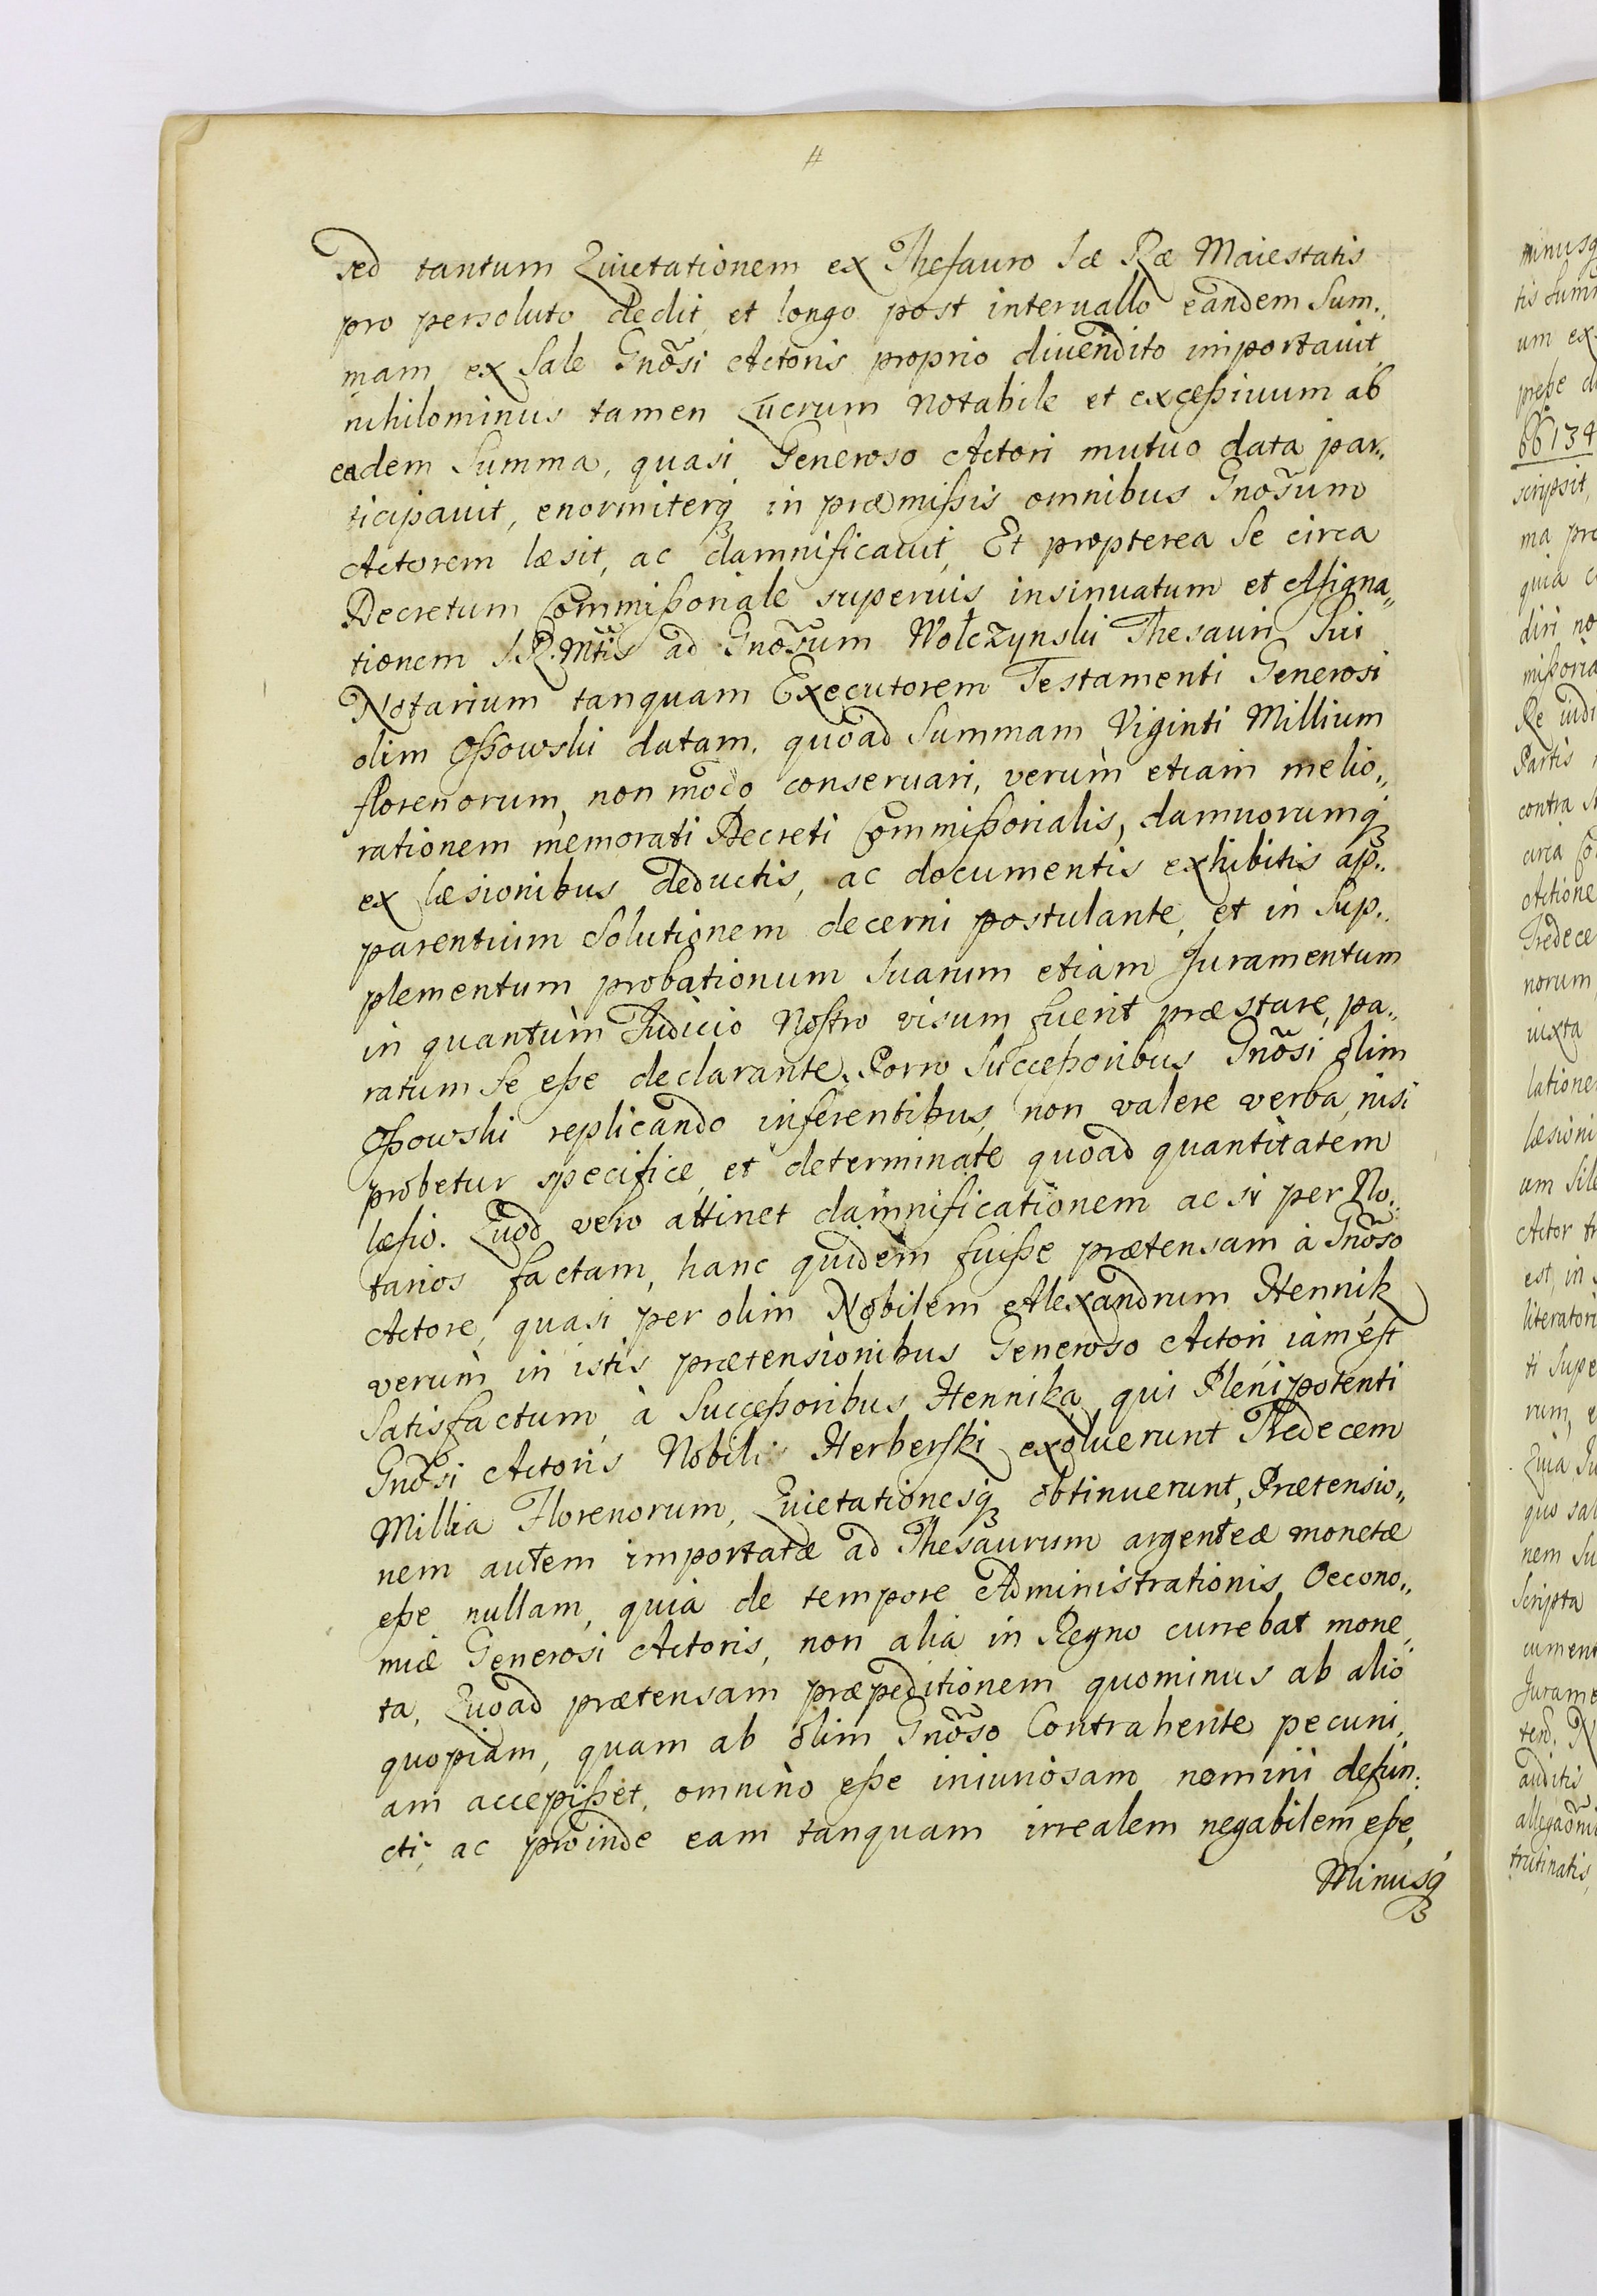 #
sed tantum Quietationem ex Thesauro Sæ Ræ Maiestatis
pro persoluto dedit, et longo post interuallo eandem Sum„
mam ex Sale Gnõsi Actoris proprio diuendito importauit
nihilominus tamen Lucrum notabile et exceßiuum ab
eadem Summa, quasi Generoso Actori mutuo data par„
ticipauit, enormiterq̃ in præmißis omnibus Gnõsum
Actorem læsit, ac damnificauit, Et propterea Se circa
Decretum Commißoriale superius insinuatum et Assigna„
tionem S.R.Mtis ad Gnõsum Wołczynski Thesauri Sui
Notarium tanquam Executorem Testamenti Generosi
olim Oßowski datam, quoad Summam Viginti Millium
florenorum, non modo conseruari, verùm etiam melio„
rationem memorati Decreti Commißorialis, damnorumq̃
ex læsionibus deductis, ac documentis exhibitis ap„
parentium Solutionem decerni postulante, et in Sup„
plementum probationum Suarum etiam Juramentum
in quantùm Judicio Nostro visum fuerit præstare, pa„
ratum Se eße declarante. Porro Succeßoribus Gnõsi olim
Oßowski replicando inferentibus, non valere verba, nisi
probetur specifice, et determinate quoad quantitatem
læsio. Quod vero attinet damnificationem ac si per No„
tarios factam, hanc quidem fuiße prætensam à Gnõso
Actore, quasi per olim Nobilem Alexandrum Hennik
verùm in istis prætensionibus Generoso Actori iam est
Satisfactum à Succeßoribus Hennika, qui Plenipotenti
Gnõsi Actoris Nobili Herberski exoluerunt Tredecem
Millia Florenorum, Quietationesq̃ obtinuerunt, Prætensio„
nem autem importatæ ad Thesaurum argenteæ monetæ
eße nullam, quia de tempore Administrationis Oecono„
miæ Generosi Actoris, non alia in Regno currebat mone„
ta, Quoad prætensam præpeditionem quominus ab alio
quopiam, quam ab olim Gnõso Contrahente pecuni„
am accepißet, omnino eße iniuriosam nomini defun„
cti, ac proinde eam tanquam irrealem negabilem eße,
Minusq̃